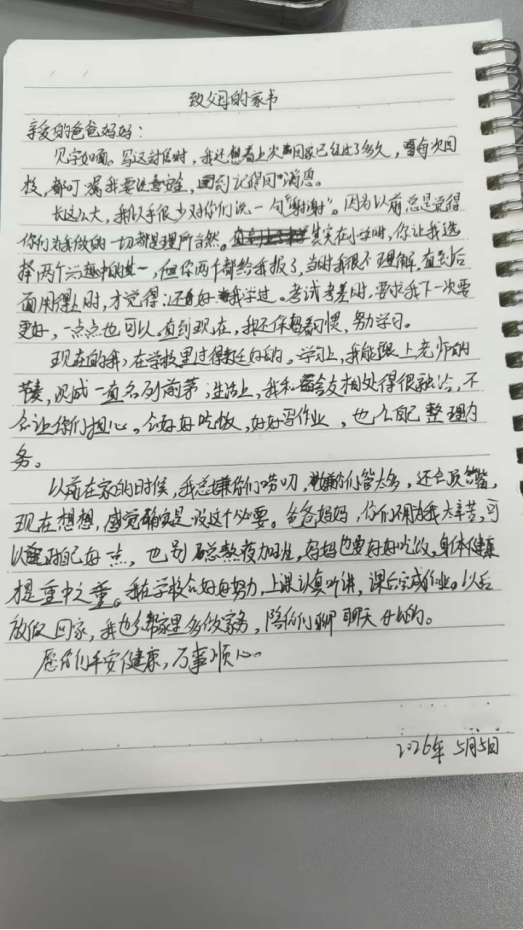 致父母的家书
亲爱的爸爸妈妈:
见字如面。写这封信时,我还想着上次离回家已经过了多久,每次回
校,都叮嘱我要注意安全,回到记得回消息。
长这么大,我似乎很少对你们说一句"谢谢"。因为以前总是觉得
你们为我做的一切都是理所当然。其实在小学时,你让我选
择两个兴趣中的其一,但你两个都给我报了,当时我很不理解,直到后
面用得上时,才觉得:还好我学过。考试考差时,要求我下一次要
更好,一点点也可以,直到现在,我还保持着习惯,努力学习。
现在的我,在学校里过得挺好的。学习上,我能跟上老师的
节奏,成一直名列前茅;生活上,我和舍友相处得很融洽,不
会让你们担心。会好好吃饭,好好写作业,也会自己整理内
务。
以前在家的时候,我总嫌你们唠叨,嫌你们管太多,还会顶嘴,
现在想想,感觉确实是没这个必要。爸爸妈妈,你们不用为我太辛苦,可
以对自己好一点,也别总熬夜加班,妈妈也要好好吃饭,身体健康
是重中之重。我在学校会好好努力,上课认真听讲,课后完成作业。以后
放假回家,我也会帮家里多做家务,陪你们聊聊天什么的。
愿你们平安健康,万事顺心。
2026年5月5日